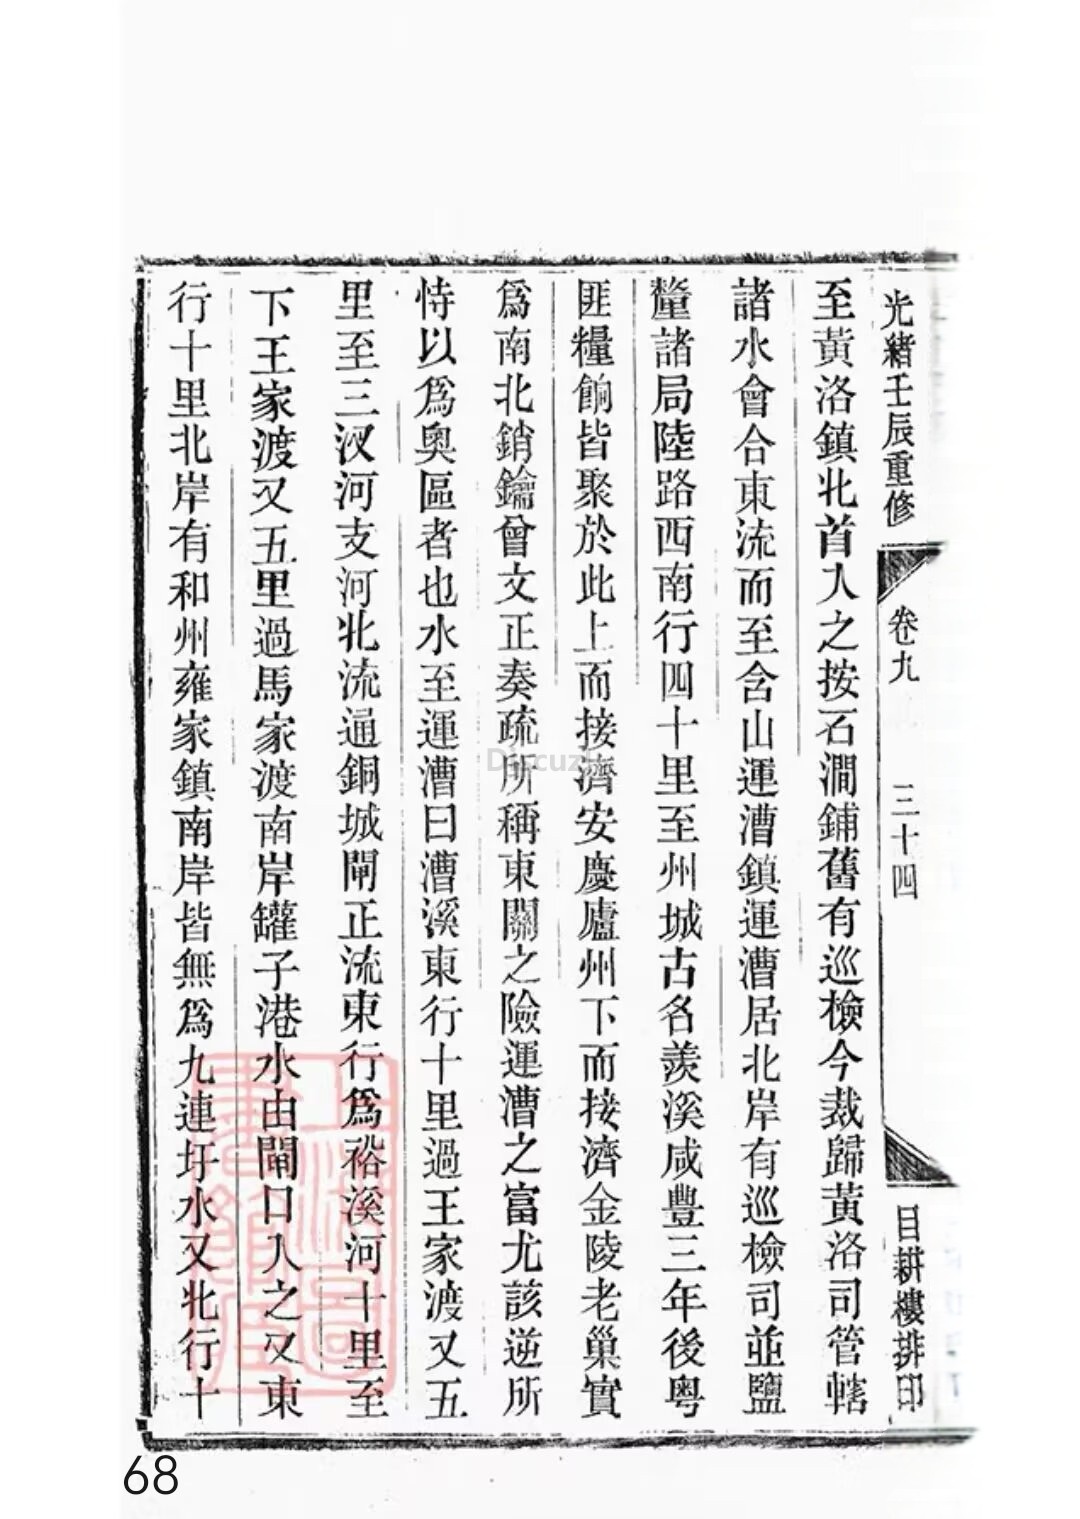 光緒壬辰重修
卷九
三十四
目耕樓排印
至黃洛鎮北首入之按石澗鋪舊有巡檢今裁歸黃洛司管轄
諸水會合東流而至含山運漕鎮運漕居北岸有巡檢司並鹽
釐諸局陸路西南行四十里至州城古名羨溪咸豐三年後粵
匪糧餉皆聚於此上而接濟安慶廬州下而接濟金陵老巢實
爲南北銷鑰曾文正奏疏所稱東關之險運漕之富尤該逆所
恃以爲奧區者也水至運漕曰漕溪東行十里過王家渡又五
里至三汊河支河北流通銅城閘正流東行爲裕溪河十里至
下王家渡又五里過馬家渡南岸罐子港水由閘口入之又東
行十里北岸有和州雍家鎮南岸皆無爲九連圩水又北行十
上海圖書館藏
Discuz!
68